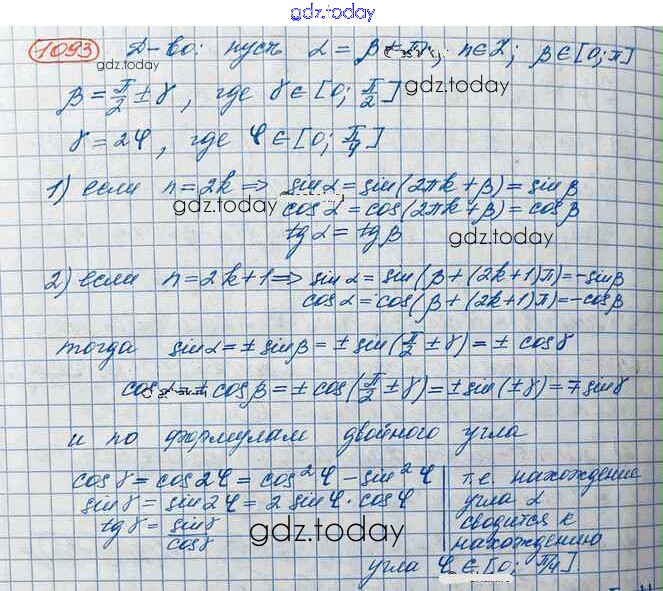 gdz.today
1093 Д-во: пусть α = β + πn, n∈Z; β∈[0;π]
gdz.today
β = π/2 ± γ, где γ∈[0; π/2]
gdz.today
γ = 2φ, где φ∈[0; π/4]
1) если n=2k ⇒ sinα = sin(2πk+β) = sinβ
gdz.today
cosα = cos(2πk+β) = cosβ
tgα = tgβ
gdz.today
2) если n=2k+1 ⇒ sinα = sin(β+(2k+1)π) = -sinβ
cosα = cos(β+(2k+1)π) = -cosβ
тогда sinα = ± sinβ = ± sin(π/2 ± γ) = ± cosγ
cosα = ± cosβ = ± cos(π/2 ± γ) = ± sin(±γ) = ∓ sinγ
и по формулам двойного угла
cosγ = cos2φ = cos²φ - sin²φ
sinγ = sin2φ = 2 sinφ · cosφ
tgγ = sinγ/cosγ
gdz.today
т.е. нахождение
угла α
сводится к
нахождению
угла φ ∈ [0; π/4].